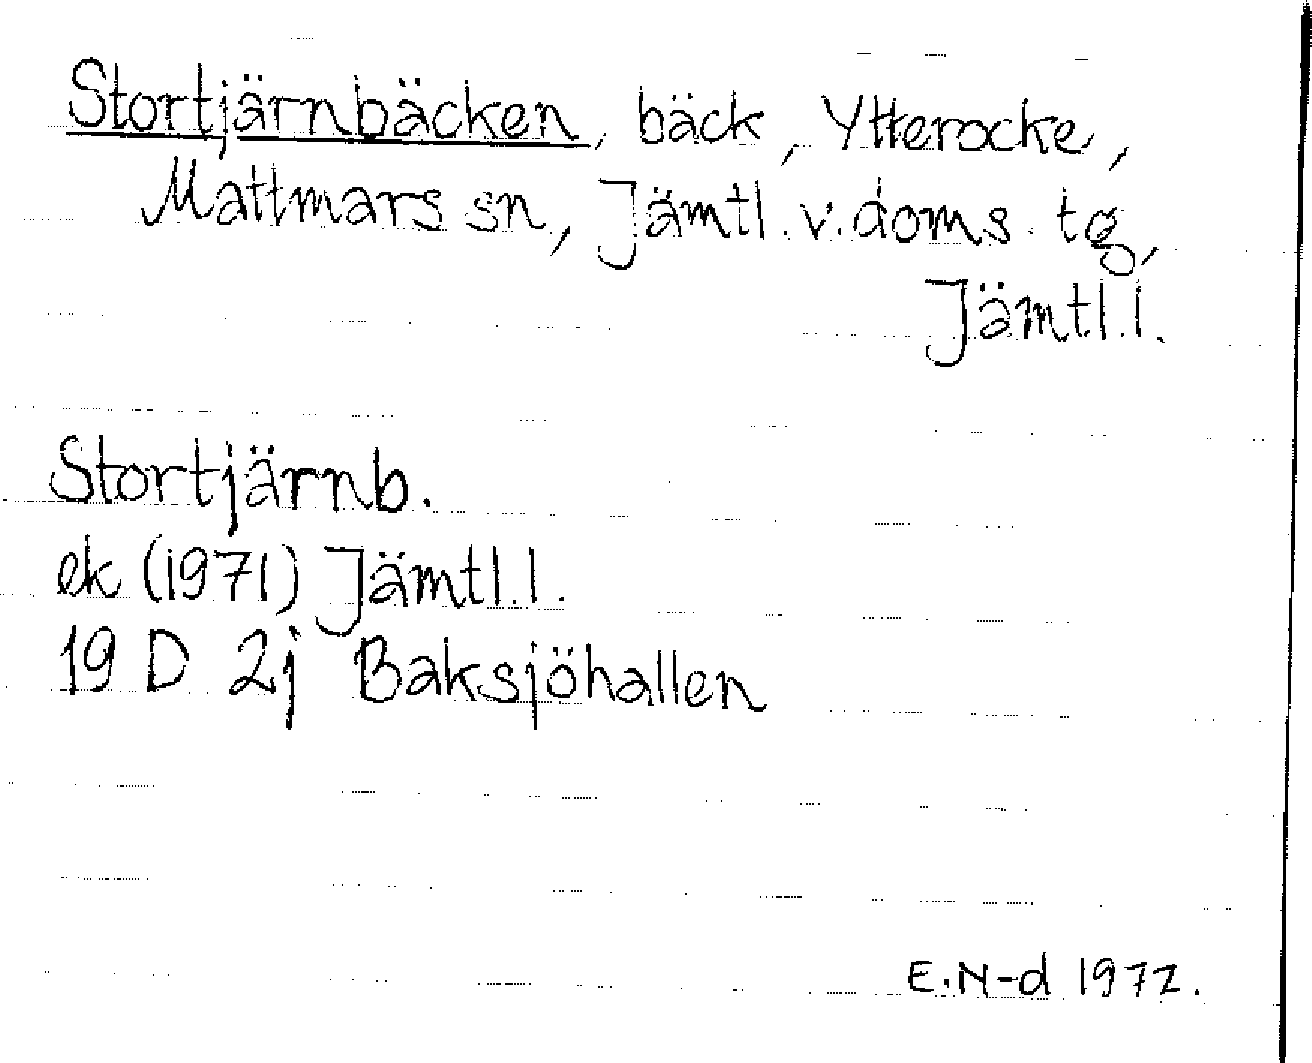 Stortjärnbäcken, bäck, Ytterocke,
Mattmars sn, Jämtl. v. doms. tg,
Jämtl. l.
Stortjärnb.
ek (1971) Jämtl. l.
19 D 2j Baksjöhallen
E.N-d 1972.